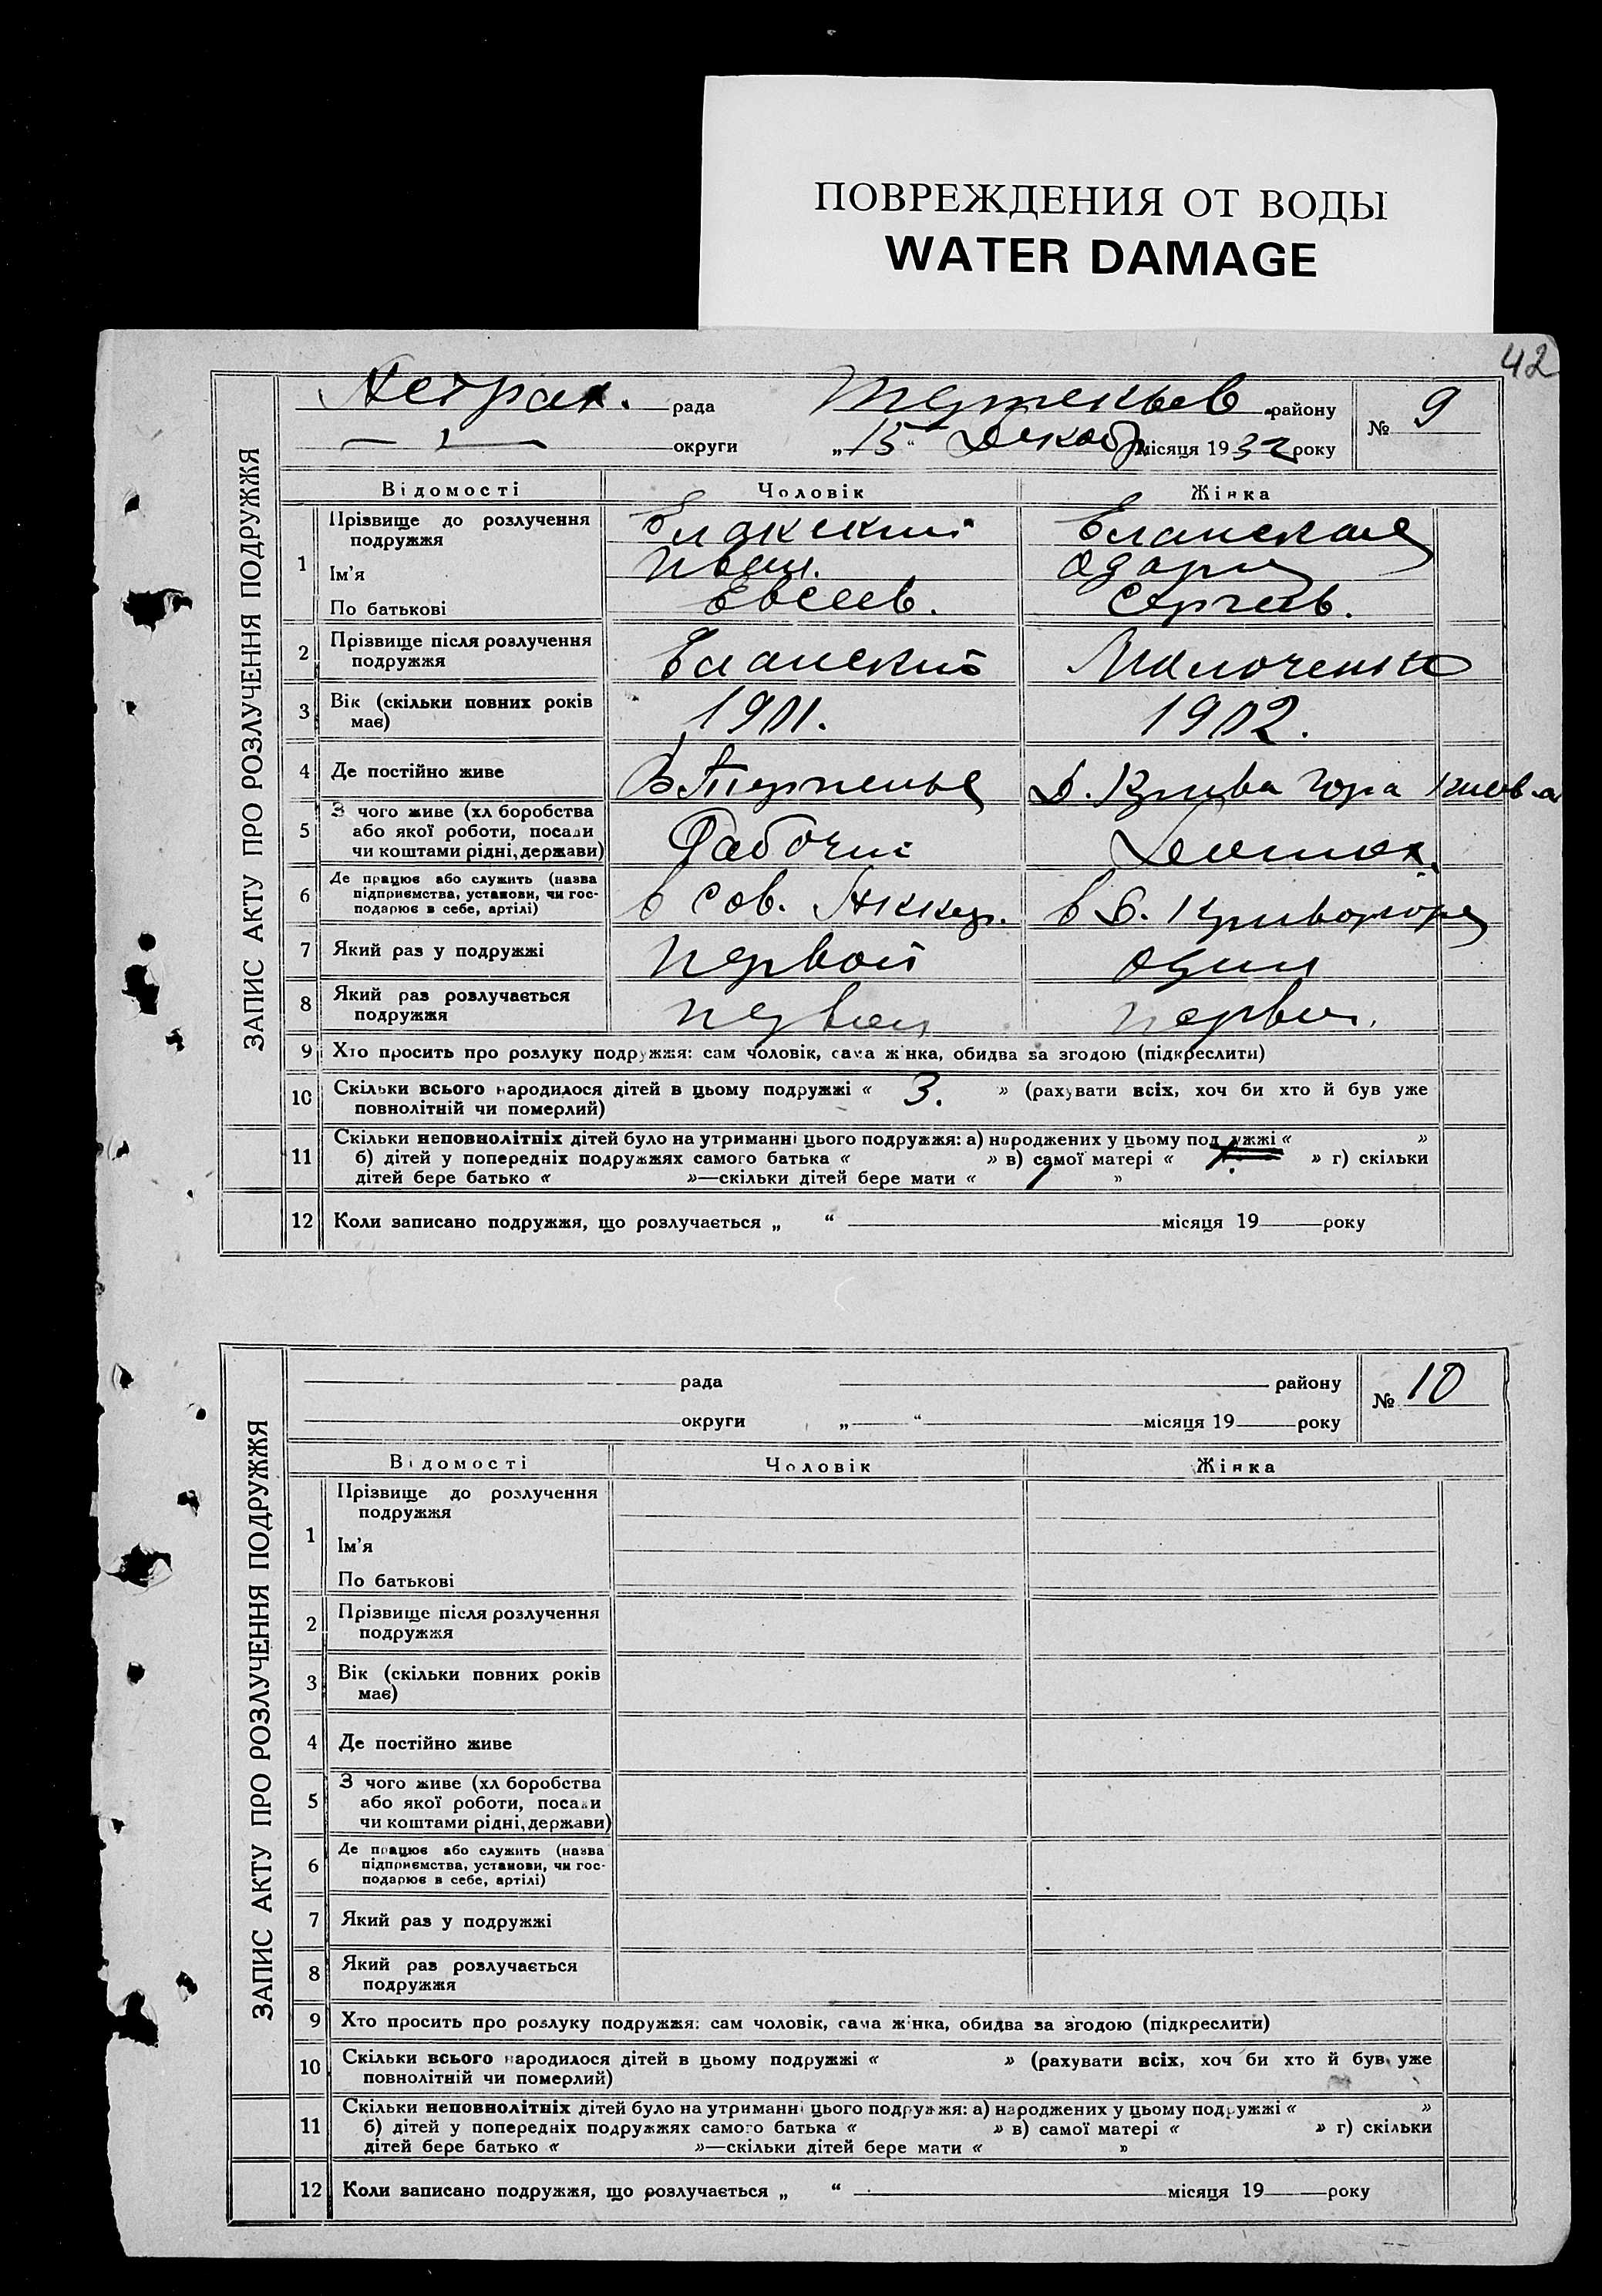 ПОВРЕЖДЕНИЯ ОТ ВОДЫ
WATER DAMAGE
42
ЗАПИС АКТУ ПРО РОЗЛУЧЕННЯ ПОДРУЖЖЯ
рада району № 9
округи „15“ Декабр місяця 1932 року
Відомості Чоловік Жінка
1 Прізвище до розлучення подружжя Еланский Еланская
Ім'я Иван. Одаря
По батькові Евсеев. Сергеев.
2 Прізвище після розлучення подружжя Еланский
3 Вік (скільки повних років має) 1901. 1902.
4 Де постійно живе Д. Крива гора
5 З чого живе (хліборобства або якої роботи, посади чи коштами рідні, держави) Рабочий
6 Де працює або служить (назва підприємства, установи, чи господарює в себе, артілі) в сов. в д. Кривогоре
7 Який раз у подружжі первой один
8 Який раз розлучається подружжя первой первой.
9 Хто просить про розлуку подружжя: сам чоловік, сама жінка, обидва за згодою (підкреслити)
10 Скільки всього народилося дітей в цьому подружжі « 3. » (рахувати всіх, хоч би хто й був уже
повнолітній чи померлий)
11 Скільки неповнолітніх дітей було на утриманні цього подружжя: а) народжених у цьому подружжі « »
б) дітей у попередніх подружжях самого батька « » в) самої матері « » г) скільки
дітей бере батько « »—скільки дітей бере мати « »
12 Коли записано подружжя, що розлучається „ “ місяця 19 року
ЗАПИС АКТУ ПРО РОЗЛУЧЕННЯ ПОДРУЖЖЯ
рада району № 10
округи „ “ місяця 19 року
Відомості Чоловік Жінка
1 Прізвище до розлучення
подружжя
Ім'я
По батькові
2 Прізвище після розлучення
подружжя
3 Вік (скільки повних років
має)
4 Де постійно живе
5 З чого живе (хліборобства
або якої роботи, посади
чи коштами рідні, держави)
6 Де працює або служить (назва
підприємства, установи, чи гос-
подарює в себе, артілі)
7 Який раз у подружжі
8 Який раз розлучається
подружжя
9 Хто просить про розлуку подружжя: сам чоловік, сама жінка, обидва за згодою (підкреслити)
10 Скільки всього народилося дітей в цьому подружжі « » (рахувати всіх, хоч би хто й був уже
повнолітній чи померлий)
11 Скільки неповнолітніх дітей було на утриманні цього подружжя: а) народжених у цьому подружжі « »
б) дітей у попередніх подружжях самого батька « » в) самої матері « » г) скільки
дітей бере батько « »—скільки дітей бере мати « »
12 Коли записано подружжя, що розлучається „ “ місяця 19 року